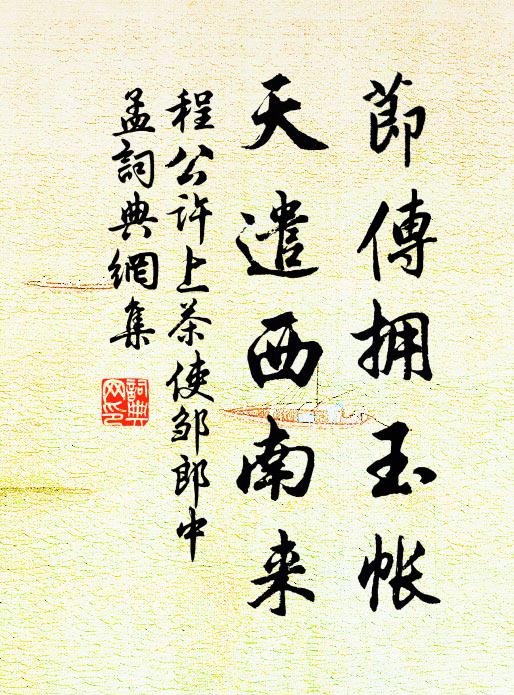 節傳拥玉帐
天遣西南来
程公许上茶使邹郎中
孟詞典網集
詞典
网印